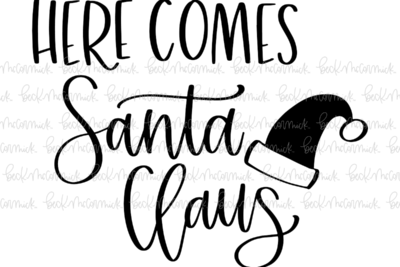 HERE COMES
Santa
Claus